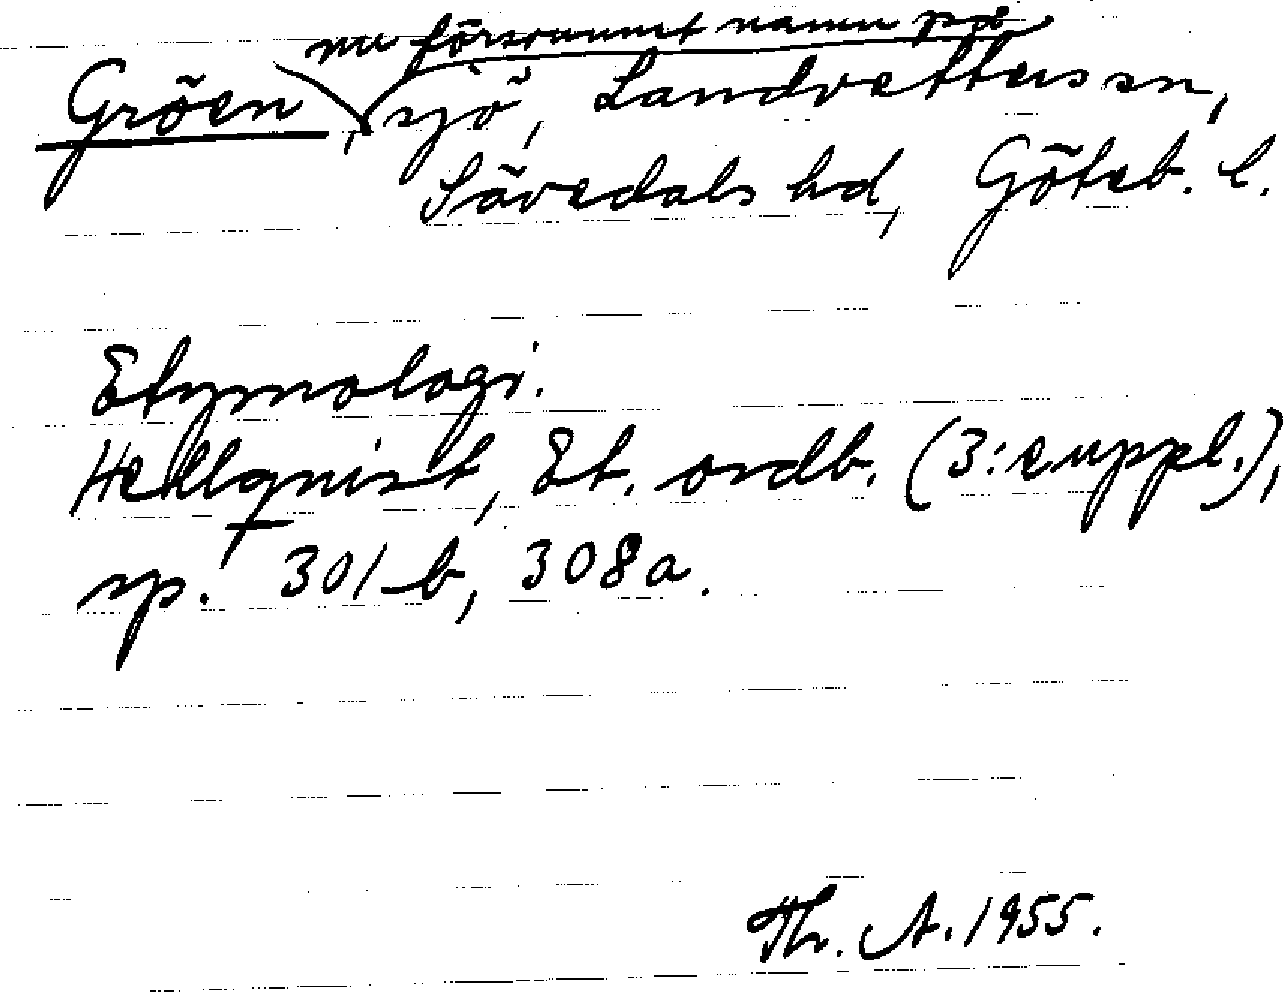 nu försvunnet namn på
Gröen, sjö, Landvetters sn,
Sävedals hd, Göteb. l.
Etymologi.
Hellquist, Et. ordb. (3:e uppl.),
sp. 301 b, 308 a.
Th. A. 1955.